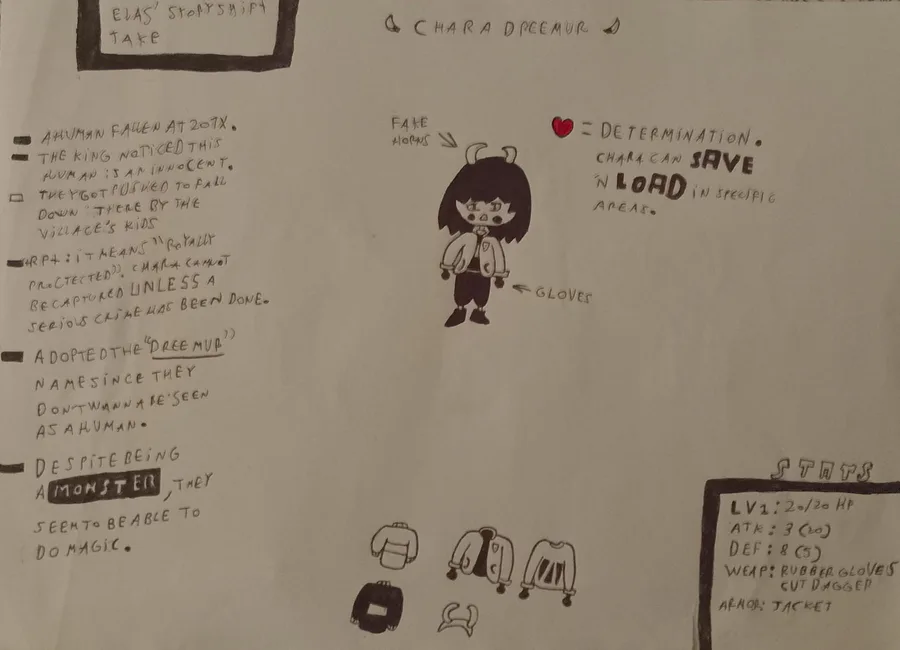 ELAS' STORYSHIFT
TAKE
CHARA DREEMUR
A HUMAN FALLEN AT 201X.
THE KING NOTICED THIS
HUMAN IS AN INNOCENT.
THEY GOT PUSHED TO FALL
DOWN THERE BY THE
VILLAGE'S KIDS
IT MEANS "ROYALLY
PROCTECTED". CHARA CANNOT
BE CAPTURED UNLESS A
SERIOUS CRIME HAS BEEN DONE.
ADOPTED THE "DREEMUR"
NAME SINCE THEY
DON'T WANNA BE SEEN
AS A HUMAN.
DESPITE BEING
A MONSTER, THEY
SEEM TO BE ABLE TO
DO MAGIC.
FAKE
HORNS
GLOVES
= DETERMINATION.
CHARA CAN SAVE
'N LOAD IN SPECIFIC
AREAS.
STATS
LV1: 20/20 HP
ATK: 3 (20)
DEF: 8 (5)
WEAP: RUBBER GLOVES
CUT DAGGER
ARMOR: JACKET